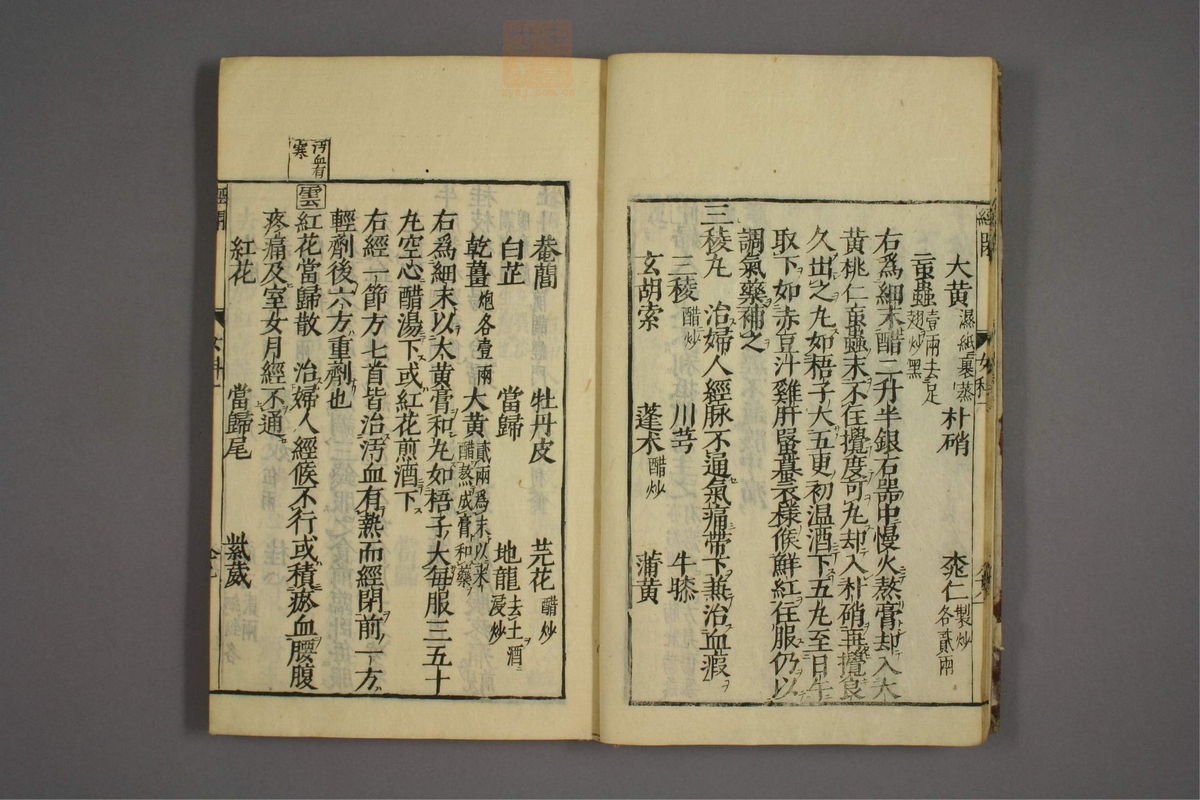 大黄濕紙裹蒸 朴硝 桃仁製炒各貳兩
䖟蟲壹兩去足翅炒黑
右爲細末醋二升半銀石器中慢火熬膏却入大
黄桃仁䖟蟲末不住攪度可丸却入朴硝再攪良
久出之丸如梧子大五更初温酒下五丸至日午
取下如赤豆汁雞肝蝦蟇衣樣候鮮紅住服仍以
調氣藥補之
三稜丸 治婦人經脉不通氣痛帶下兼治血瘕
三稜醋炒 川芎 牛膝
玄胡索 蓬朮醋炒 蒲黄
菴䕡 牡丹皮 芫花醋炒
白芷 當歸 地龍去土酒浸炒
乾薑炮各壹兩 大黄貳兩爲末以米醋熬成膏和藥
右爲細末以大黄膏和丸如梧子大每服三五十
丸空心醋湯下或紅花煎酒下
右經一節方七首皆治汚血有熱而經閉前一方
輕劑後六方重劑也
汚血有寒
雲
紅花當歸散 治婦人經候不行或積瘀血腰腹
疼痛及室女月經不通
紅花 當歸尾 紫葳
經閉 女科